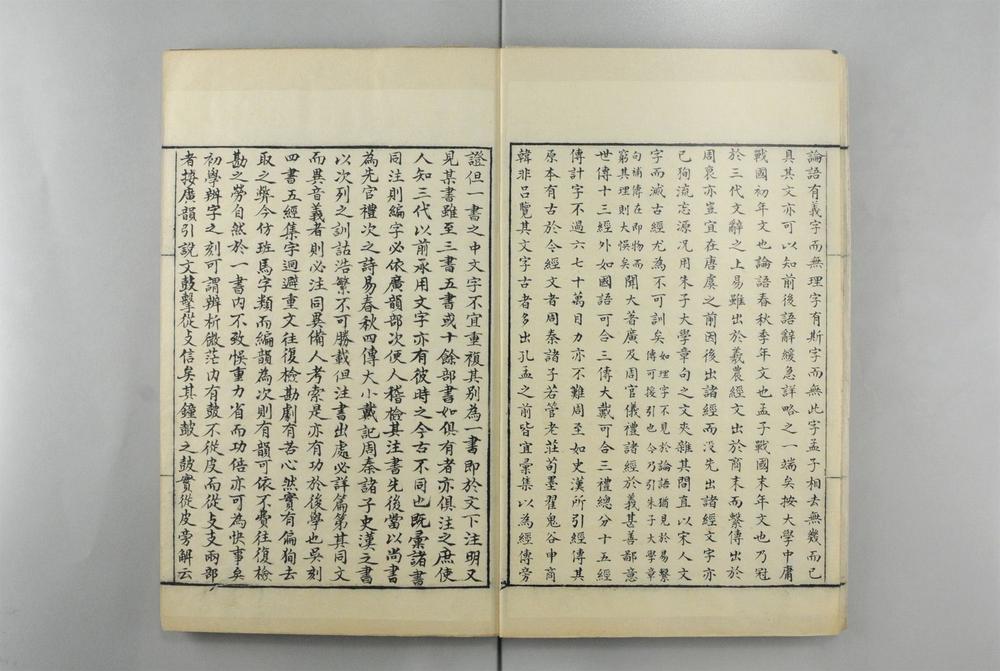 論語有義字而無理字有斯字而無此字孟子相去無幾而已
具其文亦可以知前後語辭緩急詳略之一端矣按大學中庸
戰國初年文也論語春秋季年文也孟子戰國末年文也乃冠
於三代文辭之上易雖出於羲農經文出於商末而繫傳出於
周衰亦豈宜在唐虞之前因後出諸經而沒先出諸經文字亦
已狥流忘源况用朱子大學章句之文夾雜其間直以宋人文
字而滅古經尤為不可訓矣如理字不見於論語猶見於易繫
傳可援引也今乃引朱子大學章
句補傳在即物而
窮其理則大悞矣閒大著廣及周官儀禮諸經於義甚善鄙意
世傳十三經外如國語可合三傳大戴可合三禮總分十五經
傳計字不過六七十萬目力亦不難周至如史漢所引經傳其
原本有古於今經文者周秦諸子若管老莊荀墨翟鬼谷申商
韓非呂覽其文字古者多出孔孟之前皆宜彙集以為經傳旁
證但一書之中文字不宜重複其别為一書即於文下注明又
見某書雖至三書五書或十餘部書如俱有者亦俱注之庶使
人知三代以前承用文字亦有彼時之今古不同也既彙諸書
同注則編字必依廣韻部次便人稽檢其注書先後當以尚書
為先官禮次之詩易春秋四傳大小戴記周秦諸子史漢之書
以次列之訓詁浩繁不可勝載但注書出處必詳篇第其同文
而異音義者則必注同異備人考索是亦有功於後學也吳刻
四書五經集字迴避重文往復檢勘劇有苦心然實有偏狥去
取之獘今仿班馬字類而編韻為次則有韻可依不費往復檢
勘之勞自然於一書內不致悞重力省而功倍亦可為快事矣
初學辨字之刻可謂辨析微茫内有鼓不從皮而從攴支兩部
者按廣韻引說文鼓擊從攴信矣其鐘鼓之鼓實從皮旁解云